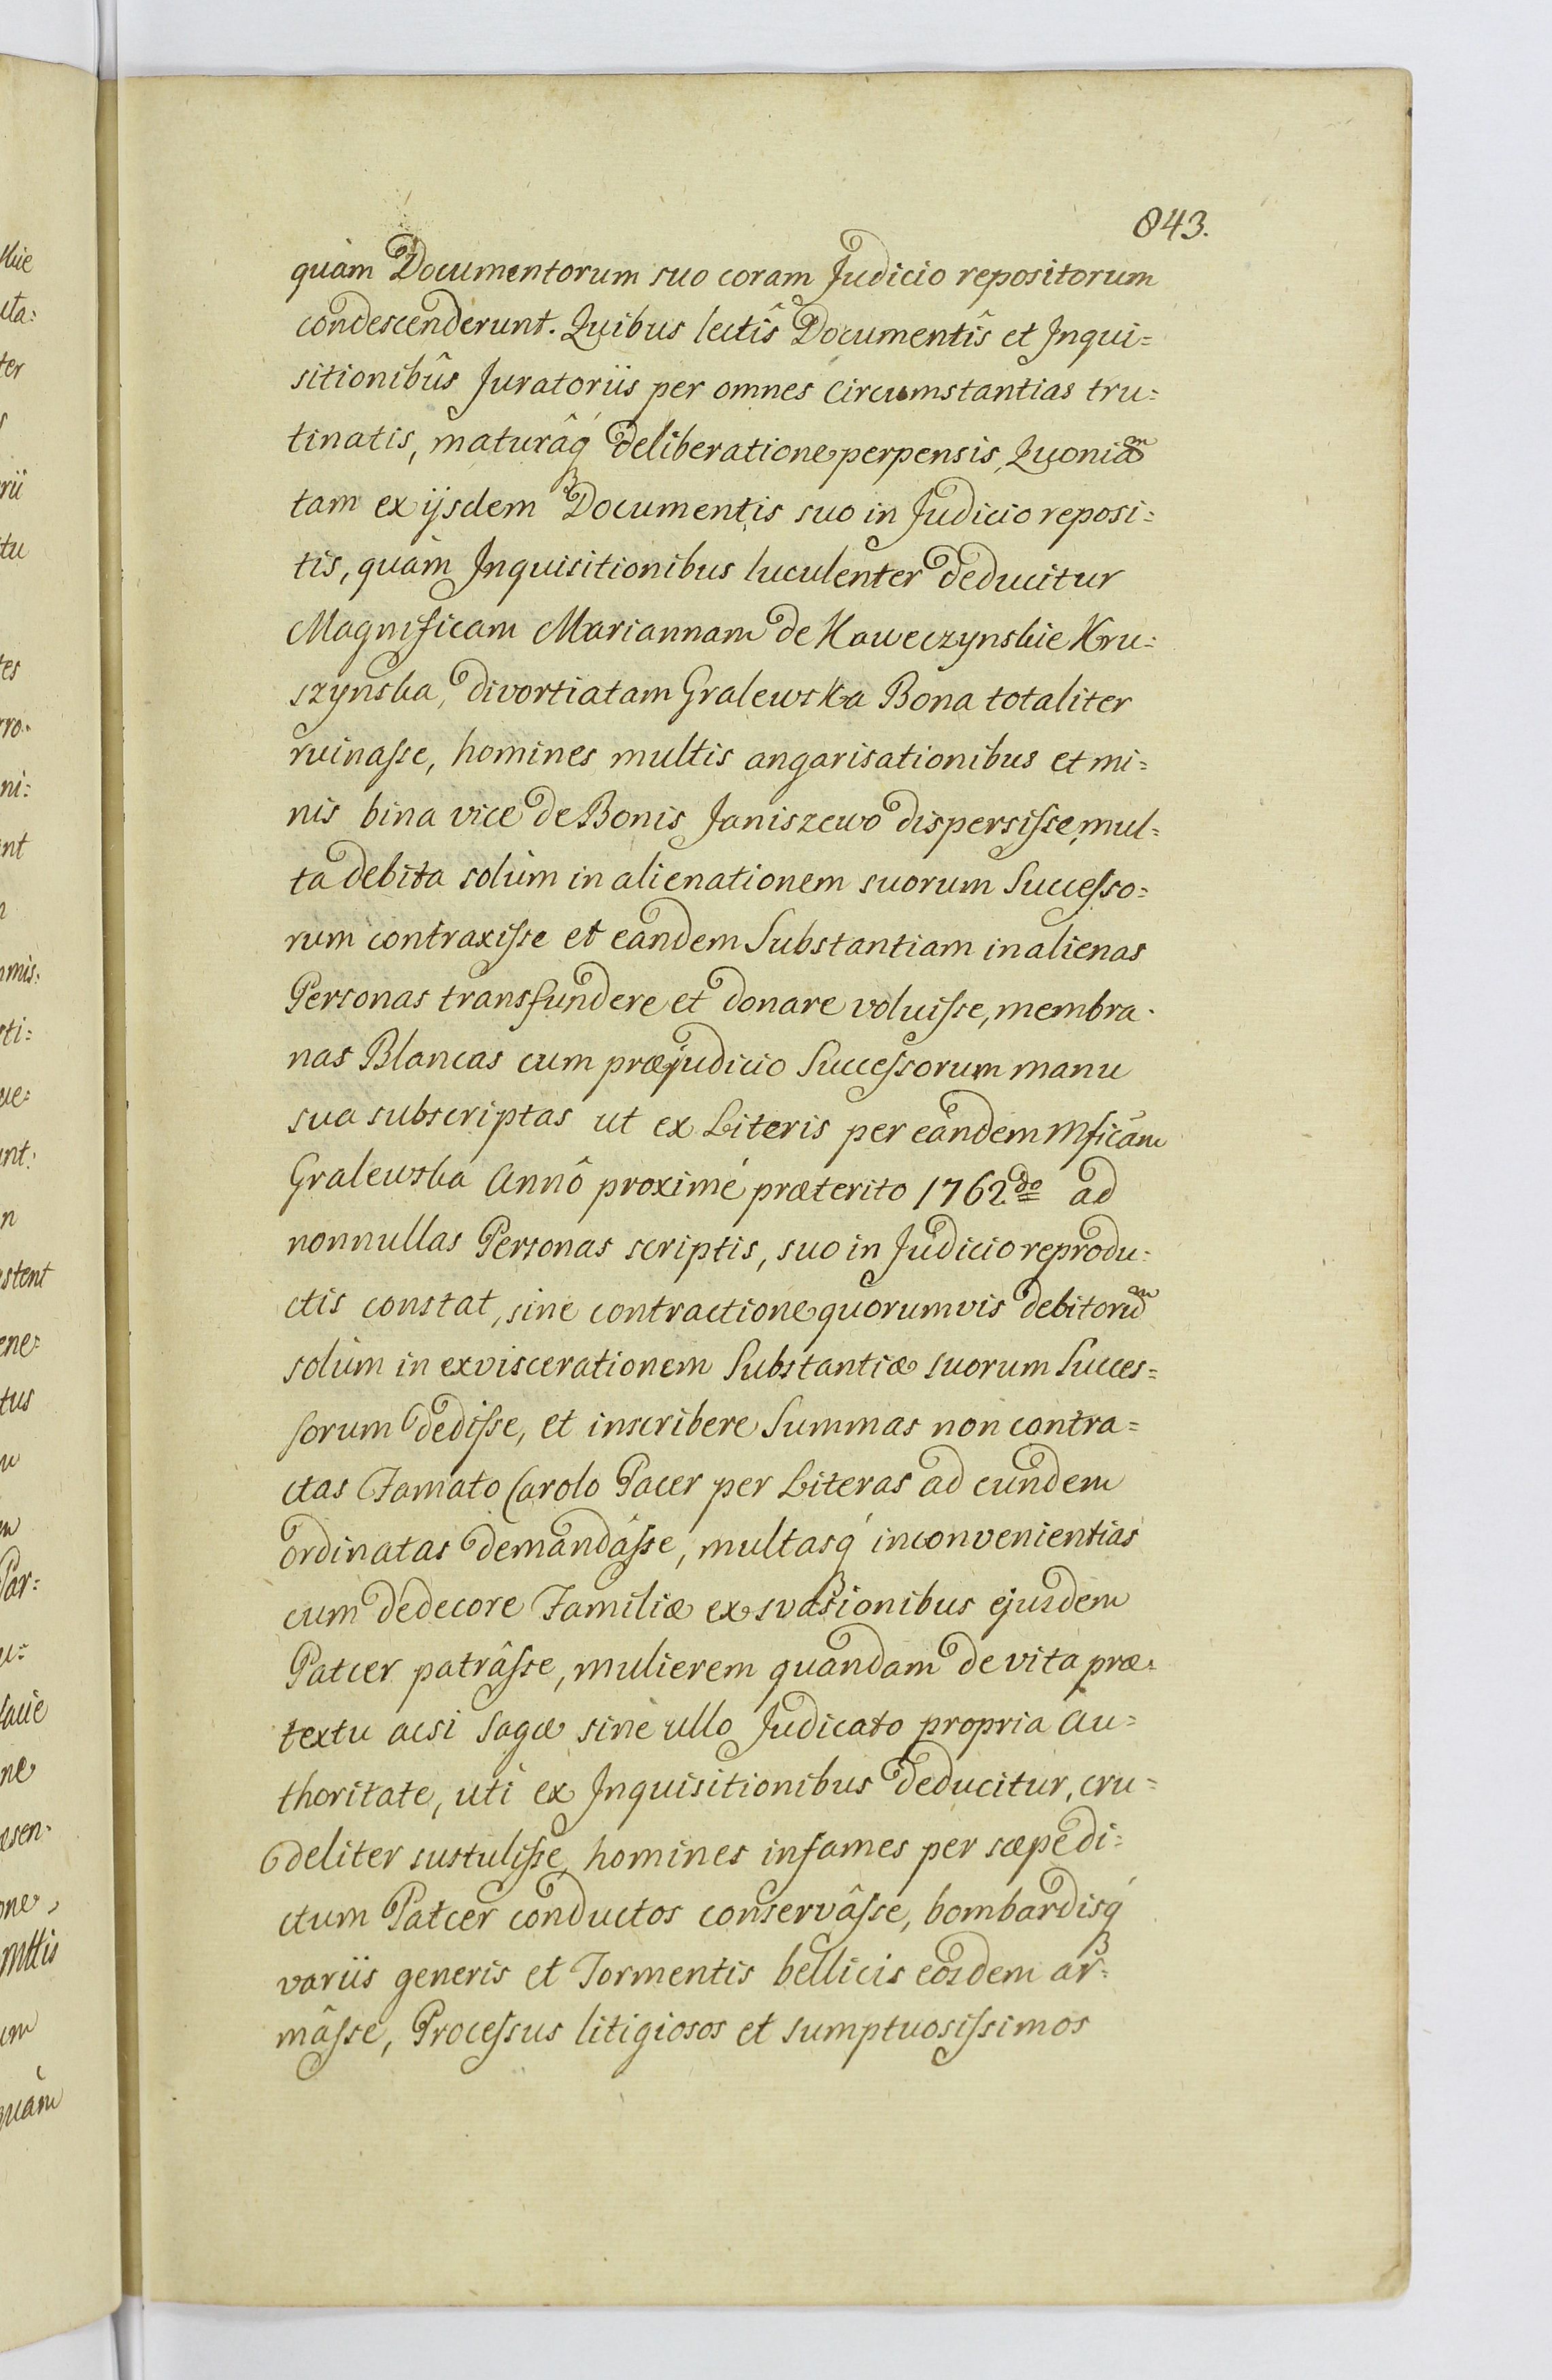 843.
quàm Documentorum suo coram Judicio repositorum
condescenderunt. Quibus lectîs Documentîs et Inqui=
sitionibûs Juratoriis per omnes Circumstantias tru=
tinatis, maturâq́ deliberatione perpensis, Quoniam
tam ex ijsdem Documentis suo in Judicio reposi=
tis, quàm Inquisitionibus luculenter deducitur
Magnificam Mariannam de Kaweczynskie Kru=
szynska, divortiatam Gralewska Bona totaliter
ruinaſse, homines multis angarisationibus et mi=
nis bina vice de Bonis Janiszewo dispersiſse, mul=
ta debita solùm in alienationem suorum Succeſso=
rum contraxiſse et eandem Substantiam in alienas
Personas transfundere et donare voluiſse, membra=
nas Blancas cum præjudicio Succeſsorum manu
sua subscriptas ut ex Literis per eandem Mficam
Gralewska Annô proximé præterito 1762do ad
nonnullas Personas scriptis, suo in Judicio reprodu=
ctis constat, sine contractione quorumvis debitorum
solùm in exviscerationem Substantiæ suorum Succes=
sorum dediſse, et inscribere Summas non contra=
ctas Famato Carolo Pacer per Literas ad eundem
ordinatas demandâſse, multasq́ inconvenientias
cum dedecore Familiæ ex svasionibus ejusdem
Patcer patrâſse, mulierem quandam de vita præ=
textu acsi sagæ sine ullo Judicato propria Au=
thoritate, uti ex Inquisitionibus deducitur, cru=
deliter sustuliſse, homines infames per sæpe di=
ctum Patcer conductos conservâſse, bombardisq́
variis generis et Tormentis bellicis eosdem ar=
mâſse, Proceſsus litigiosos et sumptuosiſsimos